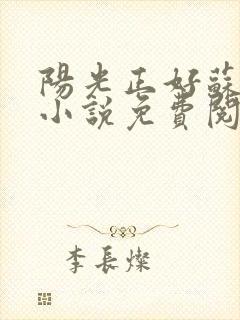 陽光正好蘇
小說免費閱
李長燦